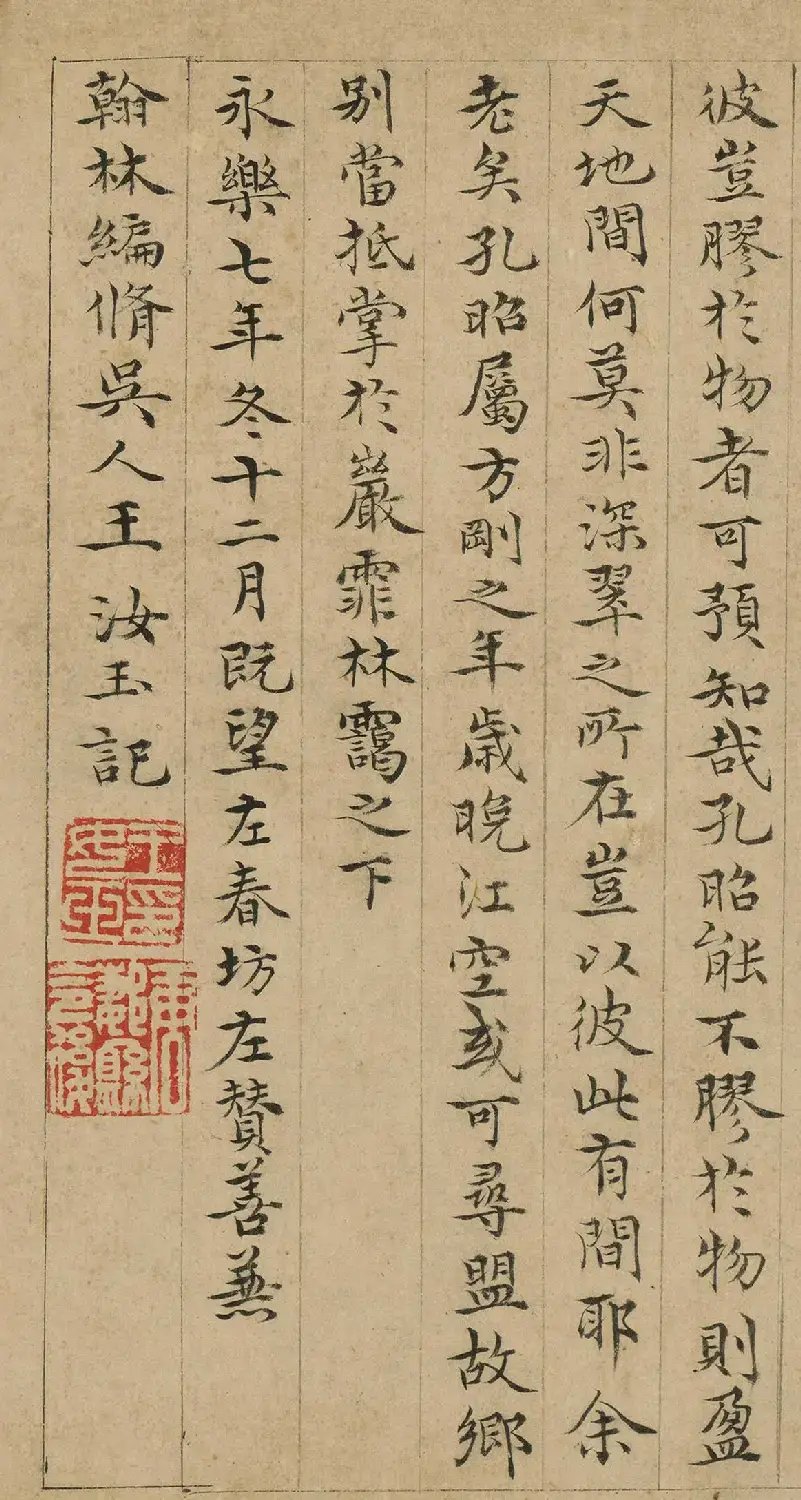 彼豈膠於物者可預知哉孔昭能不膠於物則盈
天地間何莫非深翠之所在豈以彼此有間耶余
老矣孔昭屬方剛之年歲晚江空或可尋盟故鄉
别當抵掌於巖霏林靄之下
永樂七年冬十二月既望左春坊左賛善兼
翰林編脩吳人王汝玉記